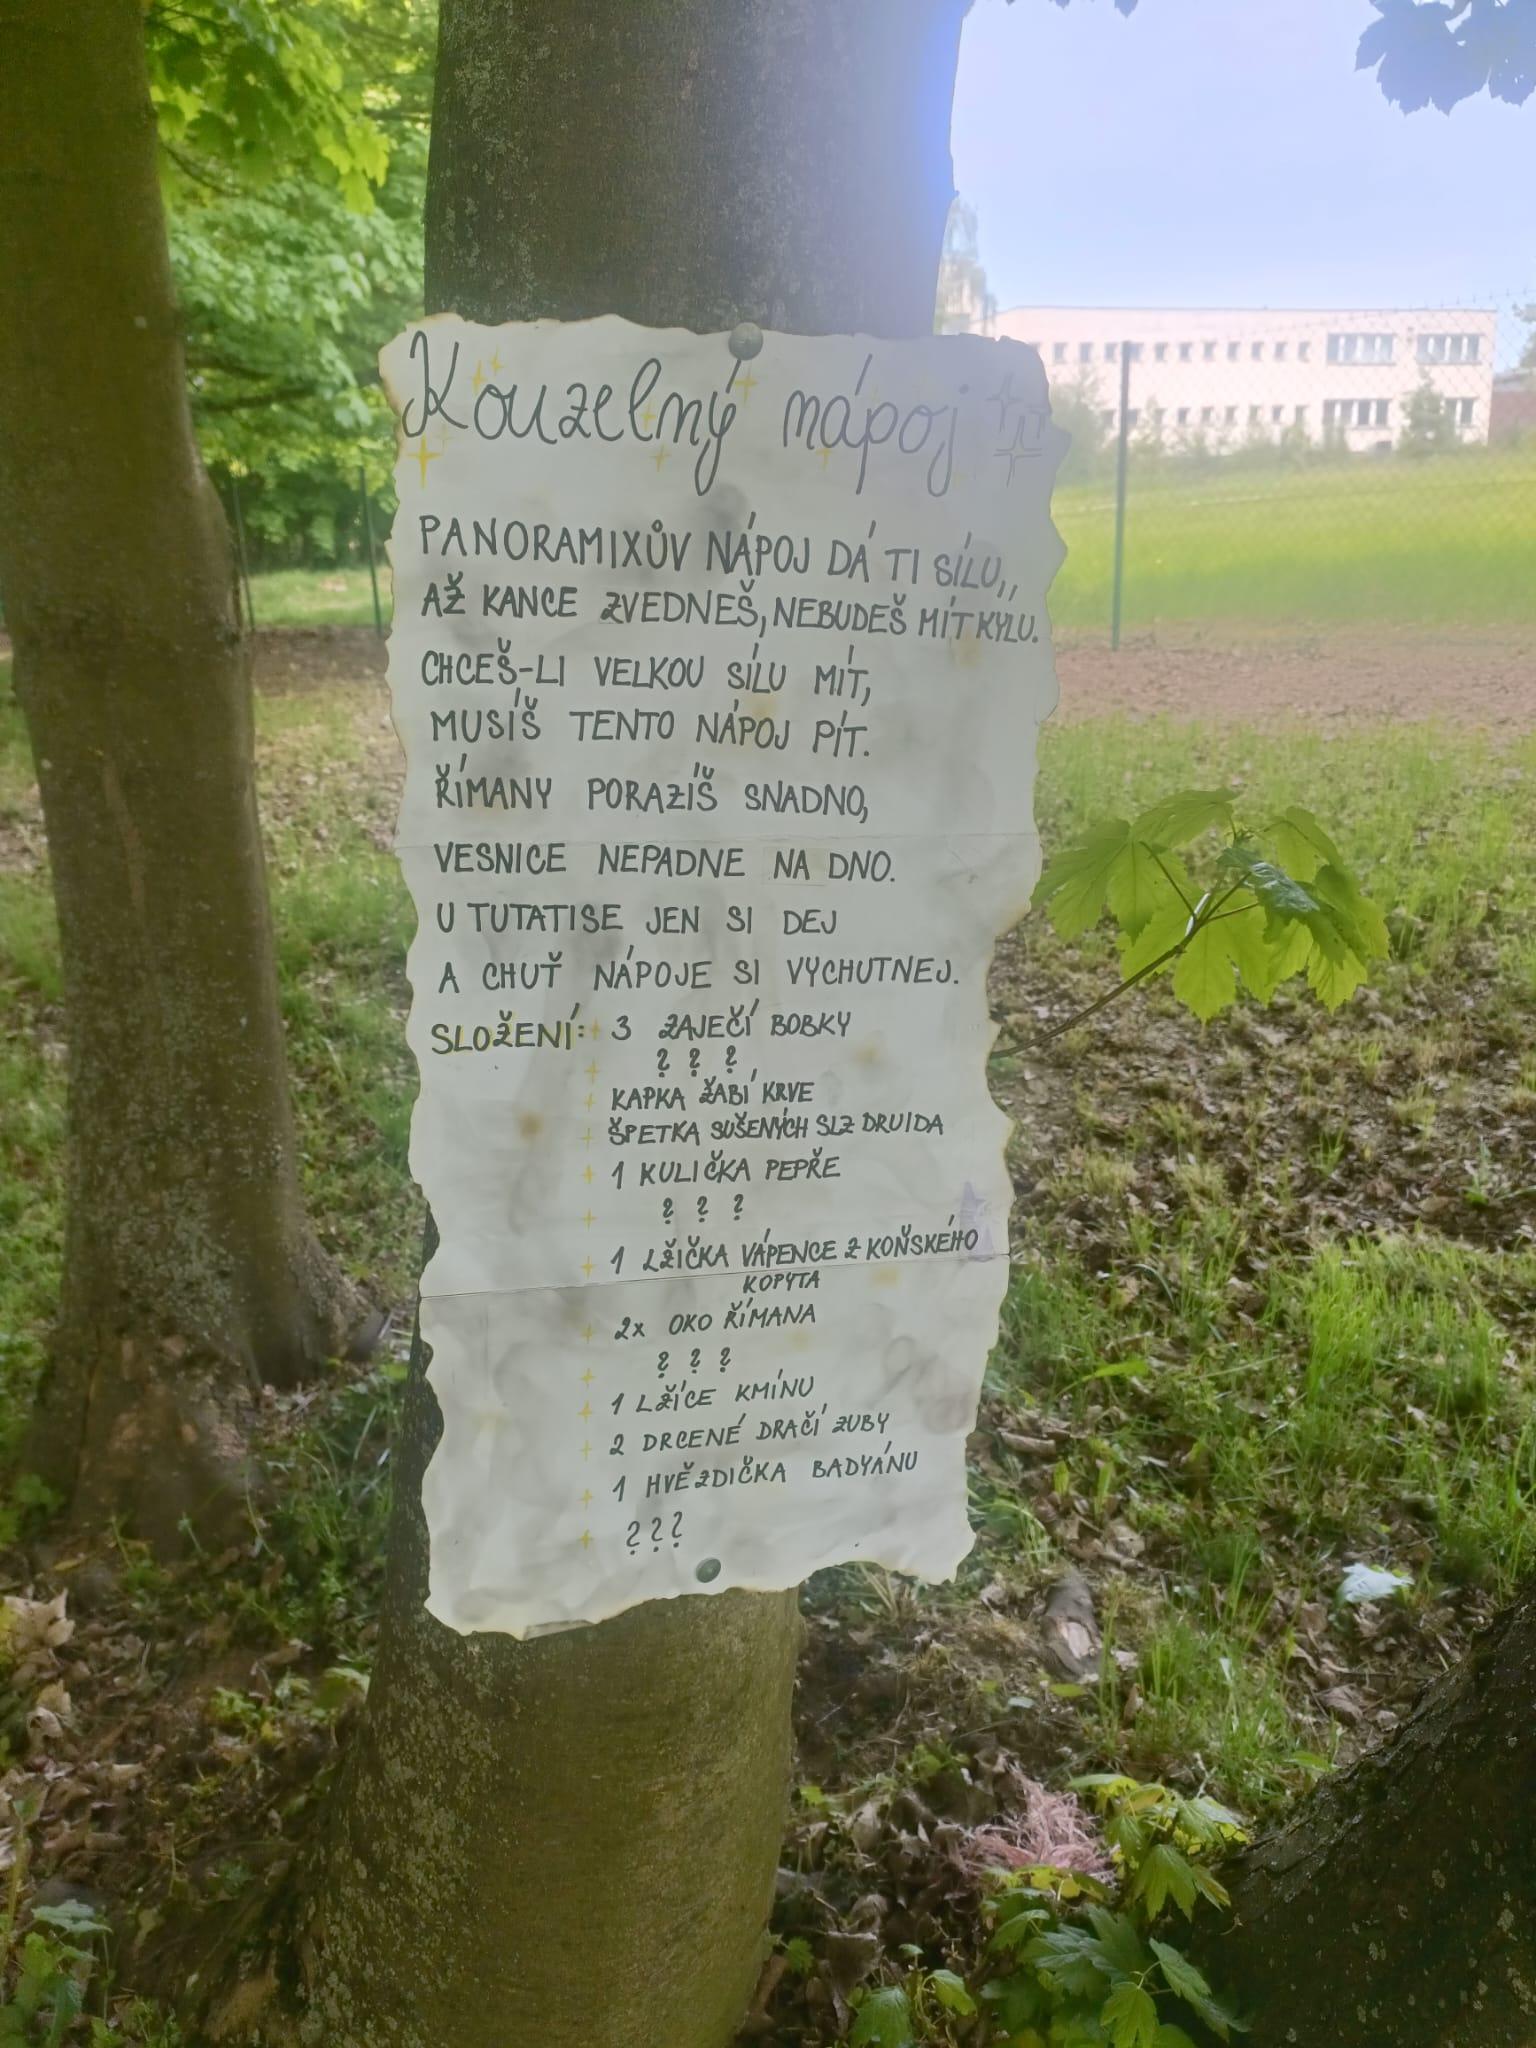 Kouzelný nápoj
PANORAMIXŮV NÁPOJ DÁ TI SÍLU,,
AŽ KANCE ZVEDNEŠ, NEBUDEŠ MÍT KÝLU.
CHCEŠ-LI VELKOU SÍLU MÍT,
MUSÍŠ TENTO NÁPOJ PÍT.
ŘÍMANY PORAZÍŠ SNADNO,
VESNICE NEPADNE NA DNO.
U TUTATISE JEN SI DEJ
A CHUŤ NÁPOJE SI VYCHUTNEJ.
SLOŽENÍ: 3 ZAJEČÍ BOBKY
? ? ?
KAPKA ŽABÍ KRVE
ŠPETKA SUŠENÝCH SLZ DRUIDA
1 KULIČKA PEPŘE
? ? ?
1 LŽIČKA VÁPENCE Z KOŇSKÉHO
KOPYTA
2x OKO ŘÍMANA
? ? ?
1 LŽÍCE KMÍNU
2 DRCENÉ DRAČÍ ZUBY
1 HVĚZDIČKA BADYÁNU
???